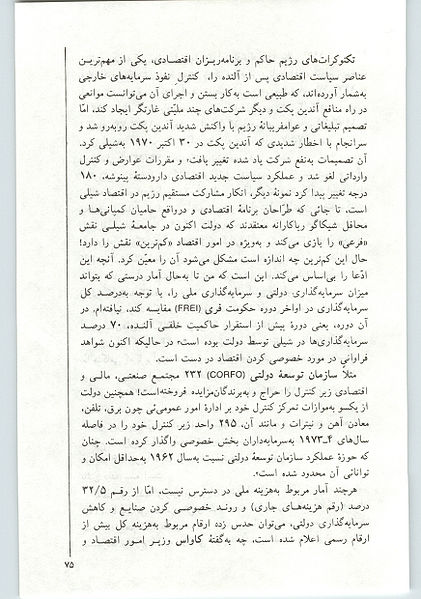 تکنوکرات‌های رژیم حاکم و برنامه‌ریزان اقتصادی، یکی از مهم‌ترین
عناصر سیاست اقتصادی پس از آلنده را، کنترل نفوذ سرمایه‌های خارجی
به‌شمار آورده‌اند، که طبیعی است به‌کار بستن و اجرای آن می‌توانست موانعی
در راه منافع آندین پکت و دیگر شرکت‌های چند ملیّتی غارتگر ایجاد کند. امّا
تصمیم تبلیغاتی و عوامفریبانهٔ رژیم با واکنش شدید آندین پکت روبه‌رو شد و
سرانجام با اخطار شدیدی که آندین پکت در ۳۰ اکتبر ۱۹۷۰ به‌شیلی کرد.
آن تصمیمات به‌نفع شرکت یاد شده تغییر یافت؛ و مقررات عوارض و کنترل
وارداتی لغو شد و عملکرد سیاست جدید اقتصادی دارودستهٔ پینوشه، ۱۸۰
درجه تغییر پیدا کرد نمونهٔ دیگر، انکار مشارکت مستقیم رژیم در اقتصاد شیلی
است. تا جائی که طرّاحان برنامهٔ اقتصادی و درواقع حامیان کمپانی‌ها و
محافل شیکاگو ریاکارانه معتقدند که دولت اکنون در جامعهٔ شیلی نقش
«فرعی» را بازی می‌کند و به‌ویژه در امور اقتصاد «کم‌ترین» نقش را دارد!
حال این کم‌ترین چه اندازه است مشکل می‌شود آن را معیّن کرد. آنچه این
ادّعا را بی‌اساس می‌کند. این است که من تا به‌حال آمار درستی که بتواند
میزان سرمایه‌گذاری دولتی و سرمایه‌گذاری ملی را، با توجه به‌درصد کل
سرمایه‌گذاری در اواخر دوره حکومت فری (FREI) مقایسه کند، نیافته‌ام. در
آن دوره، یعنی دورهٔ پیش از استقرار حاکمیت خلقی آلنده، ۷۰ درصد
سرمایه‌گذاری‌ها در شیلی توسط دولت بوده است» در حالیکه اکنون شواهد
فراوانی در مورد خصوصی کردن اقتصاد در دست است.
مثلاً سازمان توسعهٔ دولتی (CORFO) ۲۳۲ مجتمع صنعتی، مالی و
اقتصادی زیر کنترل خود را حراج و به‌برندگان‌مزایده فروخته‌است! همچنین دولت
از یکسو به‌موازات تمرکز کنترل خود بر ادارهٔ امور عمومی‌ئی چون برق، تلفن،
معادن آهن و نیترات و مانند آن، ۲۹۵ واحد زیر کنترل خود را در فاصله
سال‌های ۴ـ۱۹۷۳ به‌سرمایه‌داران بخش خصوصی واگذار کرده است. چنان
که حوزهٔ عملکرد سازمان توسعهٔ دولتی نسبت به‌سال ۱۹۶۲ به‌حداقل امکان و
توانائی آن محدود شده است».
هرچند آمار مربوط به‌هزینه ملی در دسترس نیست، امّا از رقم ۳۲/۵
درصد (رقم هزینه‌های جاری) و روند خصوصی کردن صنایع و کاهش
سرمایه‌گذاری دولتی، می‌توان حدس زد؛ ارقام مربوط به‌هزینه کل بیش از
ارقام رسمی اعلام شده است، چه به‌گفتهٔ کاواس وزیر امور اقتصاد و
۷۵